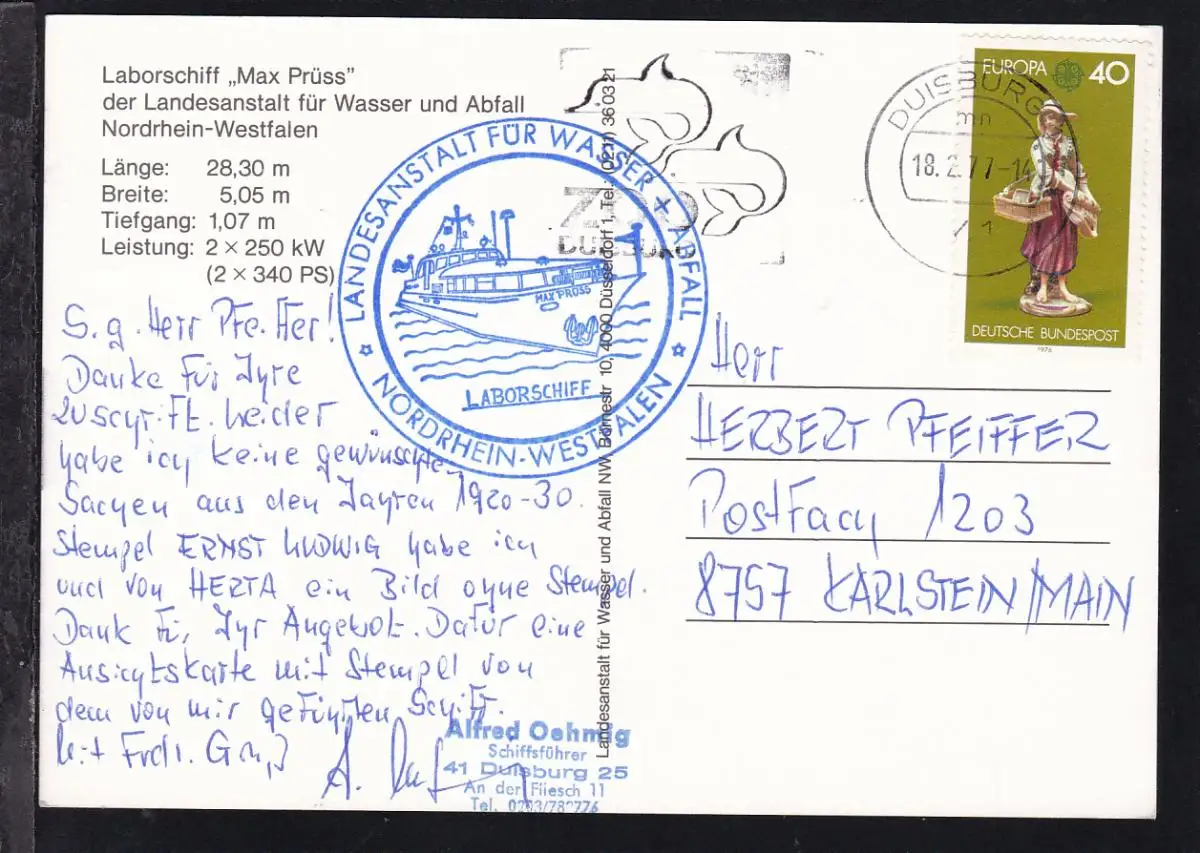 Laborschiff „Max Prüss"
der Landesanstalt für Wasser und Abfall
Nordrhein-Westfalen
Länge: 28,30 m
Breite: 5,05 m
Tiefgang: 1,07 m
Leistung: 2 × 250 kW
(2 × 340 PS)
S. g. Herr Pfeiffer!
Danke für Ihre
Zuschrift. Leider
habe ich keine gewünschte
Sachen aus den Jahren 1920-30.
Stempel ERNST LUDWIG habe ich
und von HERTA ein Bild ohne Stempel.
Dank für Ihr Angebot. Dafür eine
Ansichtskarte mit Stempel von
dem von mir geführten Schiff.
Mit Frdl. Gruß
A.
Alfred Oehmig
Schiffsführer
41 Duisburg 25
An der Fliesch 11
Tel. 0203/782776
LANDESANSTALT FÜR WASSER + ABFALL
NORDRHEIN-WESTFALEN
MAX PRÜSS
LABORSCHIFF
Landesanstalt für Wasser und Abfall NW, Börnestr 10, 4000 Düsseldorf 1, Tel.: (0211) 36 03 21
ZOO
DUISBURG
DUISBURG
mn
18.2.77-14
1
EUROPA 40
DEUTSCHE BUNDESPOST
1976
Herr
HERBERT PFEIFFER
Postfach 1203
8757 KARLSTEIN/MAIN